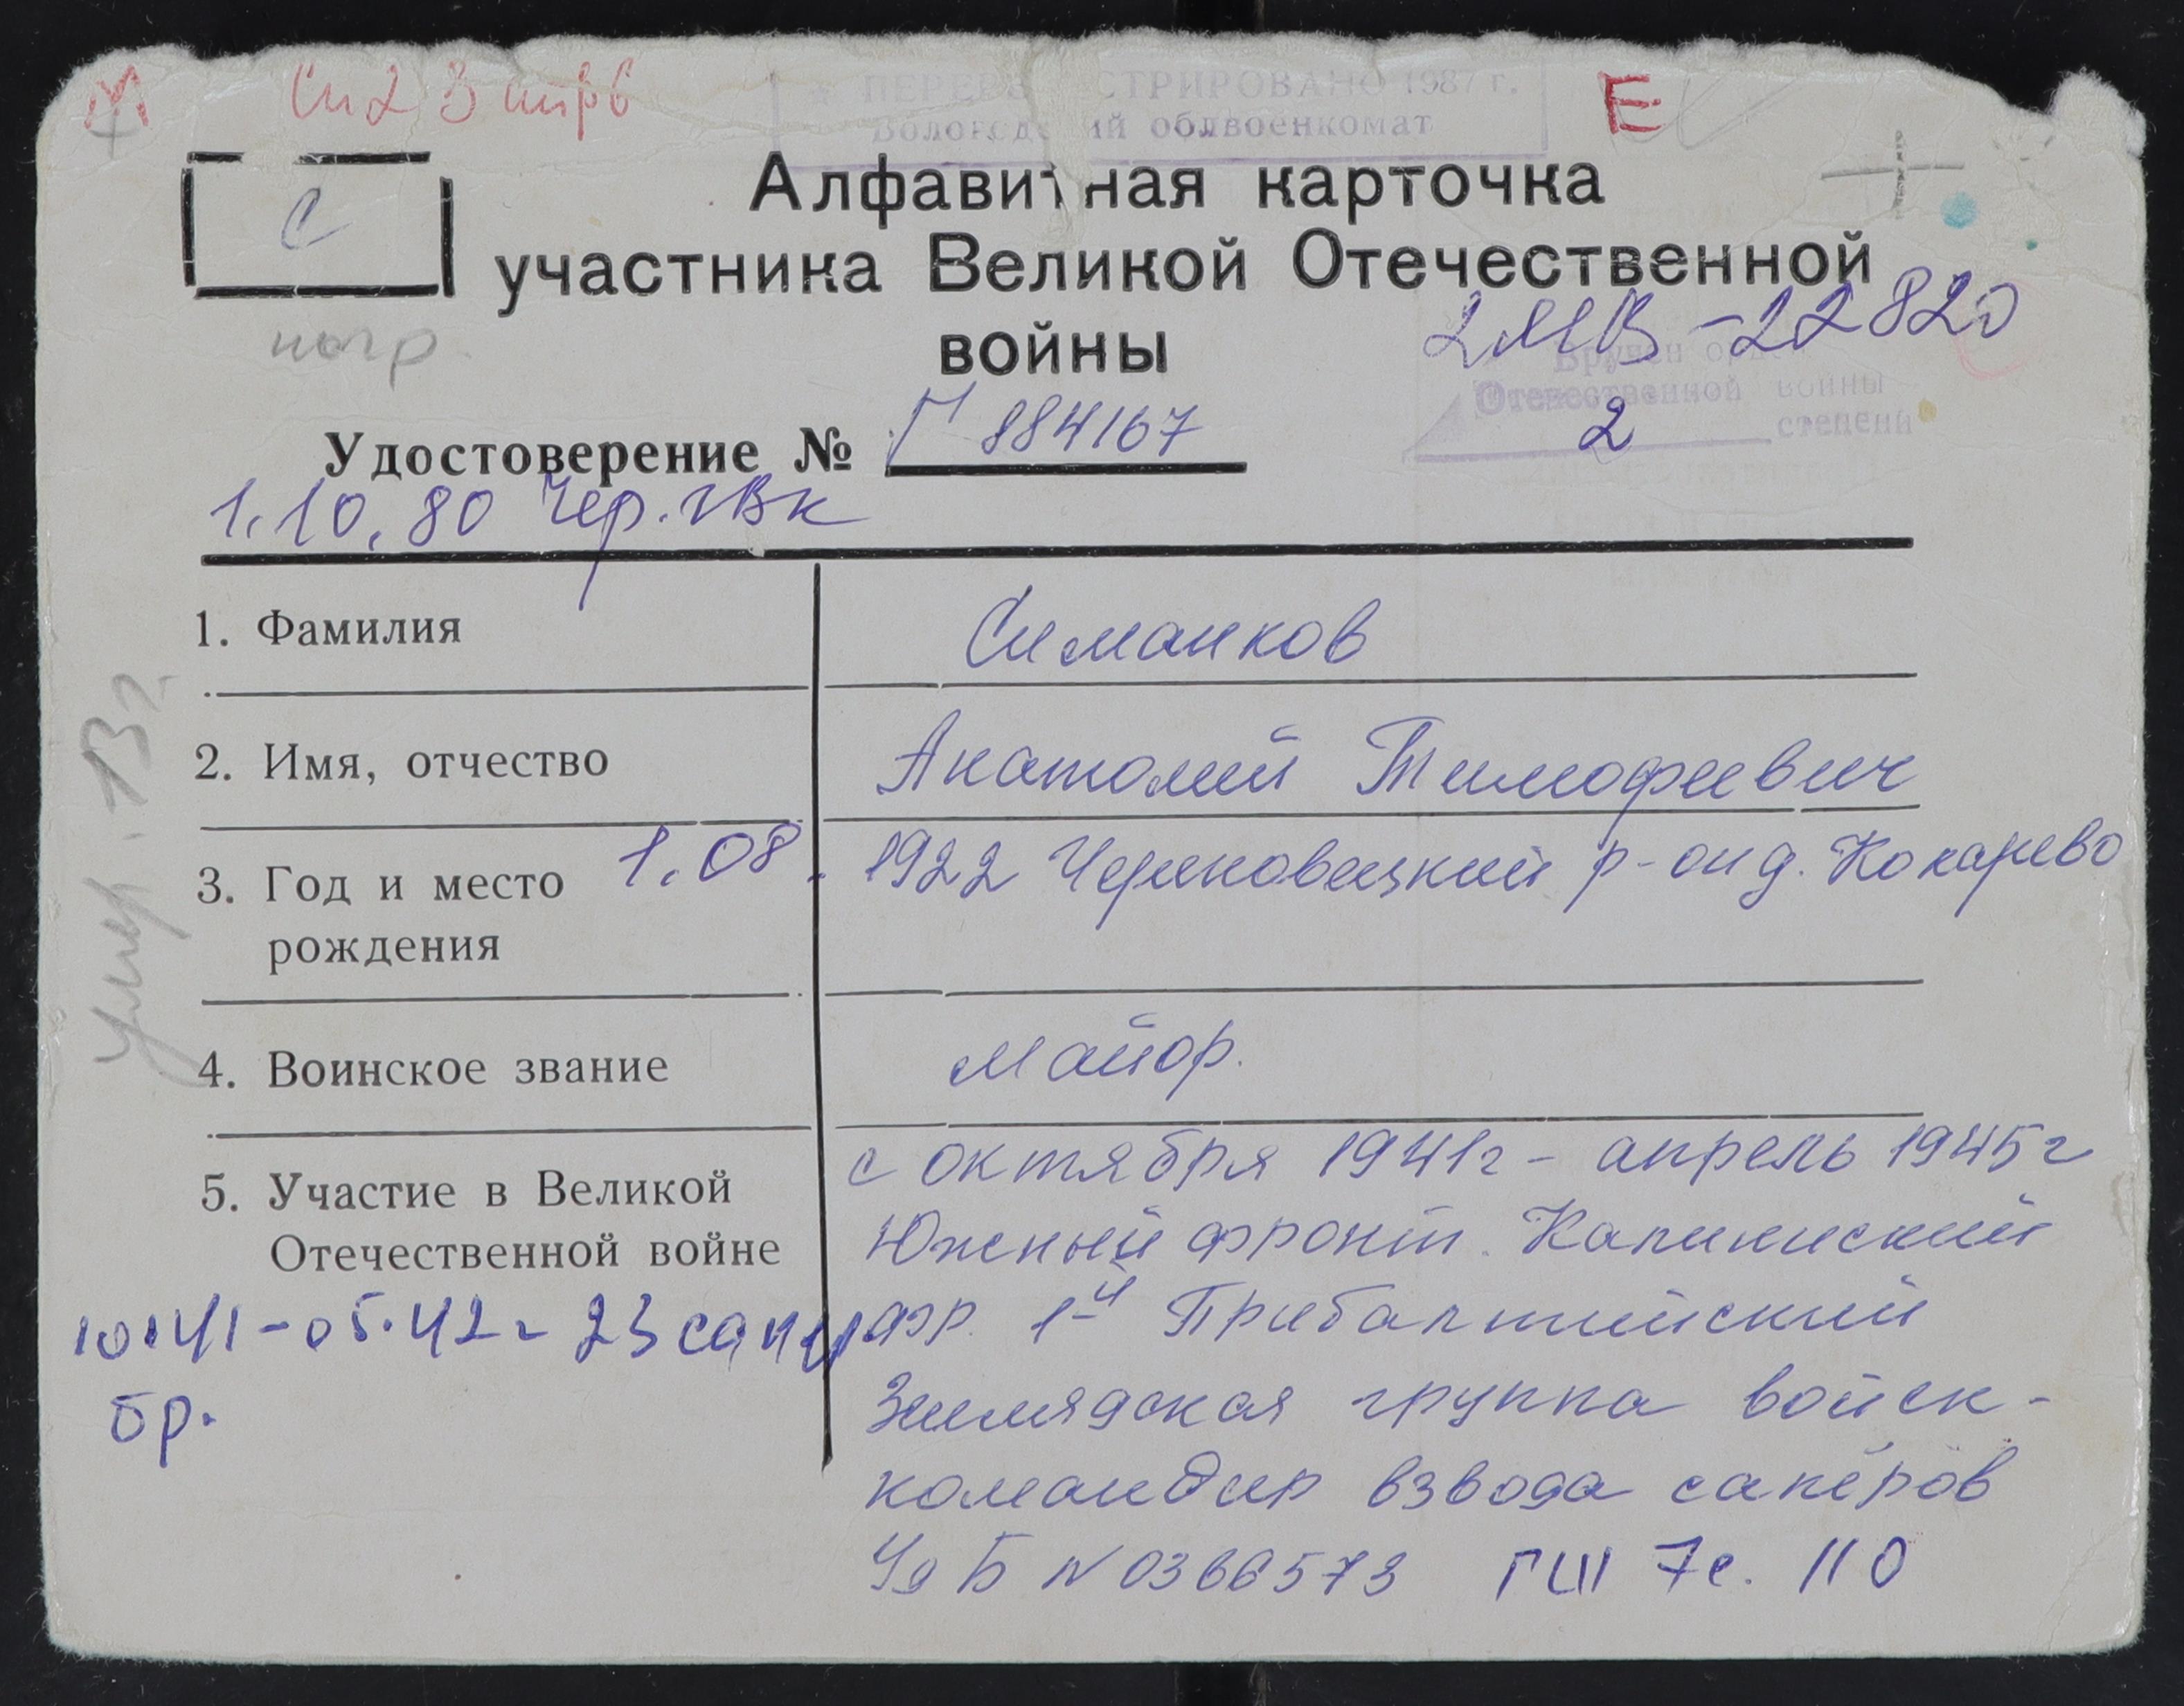 М
Е
ПЕРЕРЕГИСТРИРОВАНО 1987 г.
Вологодский облвоенкомат
С
Алфавитная карточка
участника Великой Отечественной
войны
нагр.
2МВ-22820
Вручен орден
Отечественной войны
2 степени
Удостоверение № Г 884167
1.10.80 Чер. гВк
1. Фамилия Симанков
2. Имя, отчество Анатолий Тимофеевич
3. Год и место 1.08. 1922 Череповецкий р-он д. Кокарево
рождения
умер. 13г.
4. Воинское звание майор.
5. Участие в Великой с октября 1941г - апрель 1945г
Отечественной войне Южный фронт. Калининский
10.41-05.42г 23 сап фр. 1-й Прибалтийский
бр. Земляндская группа войск-
командир взвода сапёров
Уд Б N 0366573 ГШ 7с. 110